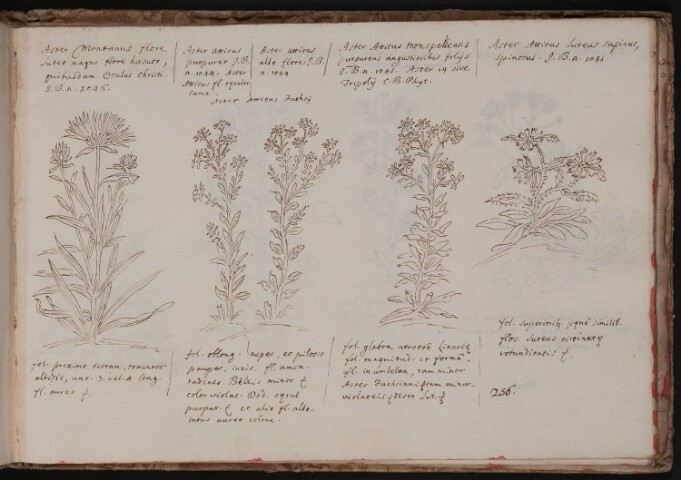 Aster Montanus flore
luteo magno flore hirsuto,
quibusdam Oculus Christi.
J.B. n. 1046.
Aster atticus
purpureo J.B.
n. 1044. Aster
Atticus fl.
Aster atticus
albo flore J.B.
n. 1044
Aster Atticus Fuchsij
Aster Atticus Monspeliensis
purpureus angustioribus folijs
J.B. n. 1045. Aster 14 sive
Tripolij C.B. Phyt.
Aster Atticus luteus supinus,
spinosus. J.B. n. 1045
fol. proxime terram,
albitis, unc. 3. vel 4 long.
fl. aureo
fol. oblong. asper, et pilosis
fl. amen.
radiatus Bellis minor
color violae. Dod.
purpur. et alio fl. albo
intus aureo colore.
fol. glabra nervosa linariae
fol. magnitud. et forma
fl. in umbellam, tam minor
Aster minor.
violaceis
fol. superioribus simil.
flos. luteus
rotunditatis
256.